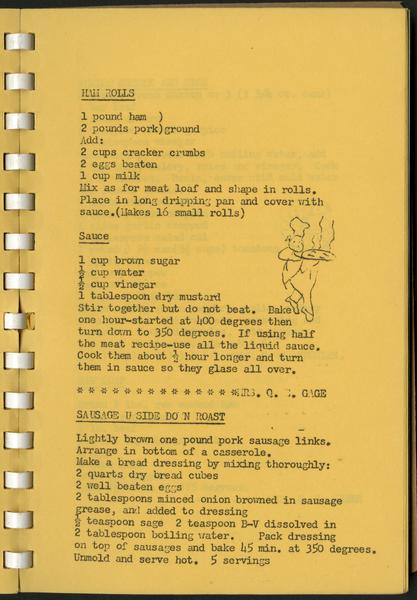 HAM ROLLS
1 pound ham )
2 pounds pork)ground
Add:
2 cups cracker crumbs
2 eggs beaten
1 cup milk
Mix as for meat loaf and shape in rolls.
Place in long dripping pan and cover with
sauce.(Makes 16 small rolls)
Sauce
1 cup brown sugar
½ cup water
½ cup vinegar
1 tablespoon dry mustard
Stir together but do not beat. Bake
one hour-started at 400 degrees then
turn down to 350 degrees. If using half
the meat recipe-use all the liquid sauce.
Cook them about ½ hour longer and turn
them in sauce so they glase all over.
* * * * * * * * * * * * * *MRS. Q. C. GAGE
SAUSAGE U SIDE DO N ROAST
Lightly brown one pound pork sausage links.
Arrange in bottom of a casserole.
Make a bread dressing by mixing thoroughly:
2 quarts dry bread cubes
2 well beaten eggs
2 tablespoons minced onion browned in sausage
grease, and added to dressing
½ teaspoon sage 2 teaspoon B-V dissolved in
2 tablespoon boiling water. Pack dressing
on top of sausages and bake 45 min. at 350 degrees.
Unmold and serve hot. 5 servings